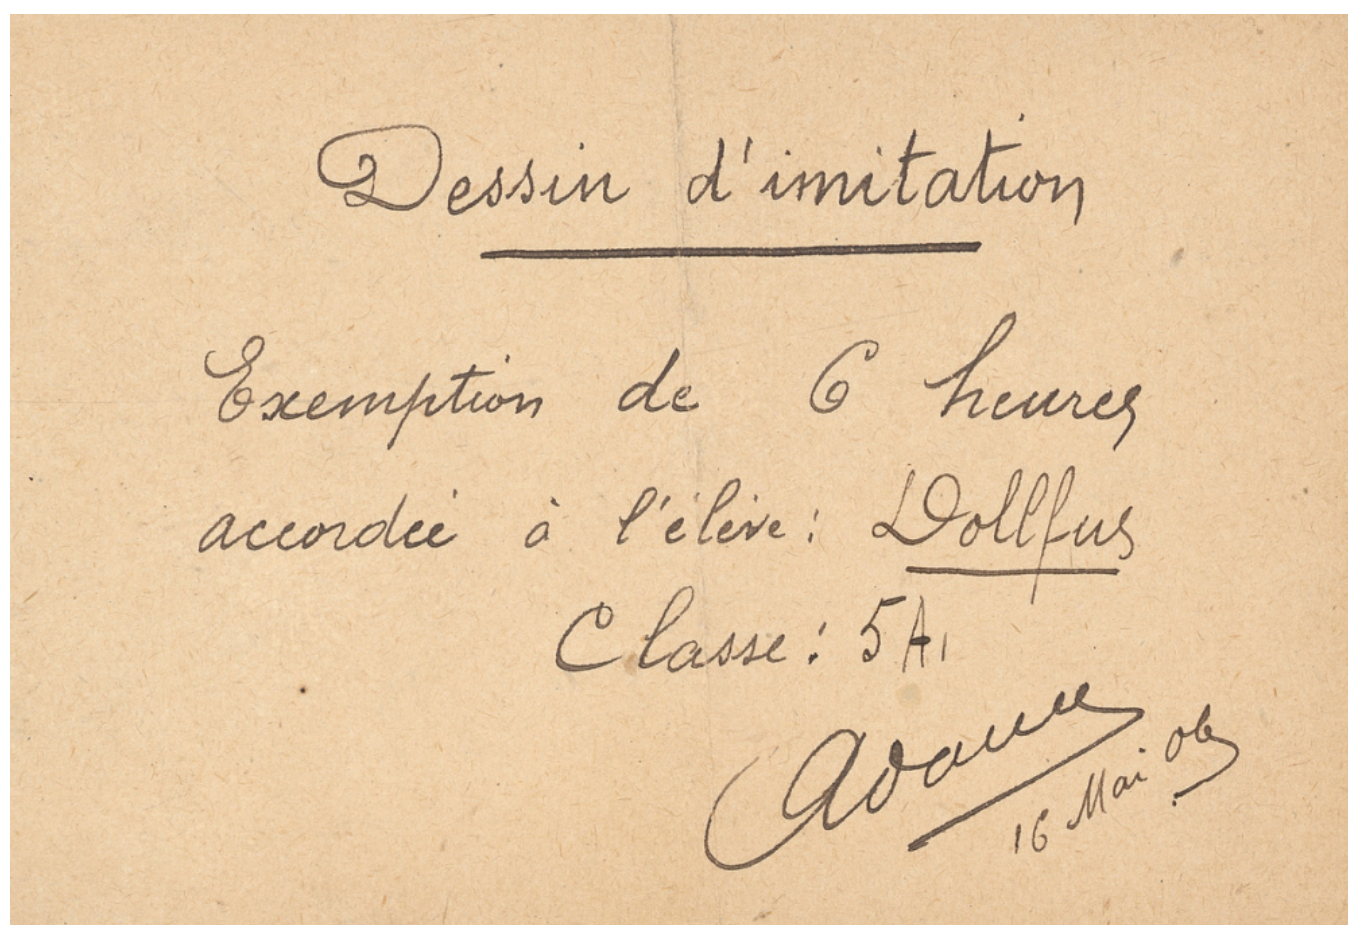 Dessin d'imitation
Exemption de 6 heures
accordée à l'élève : Dollfus
Classe : 5A1
16 Mai 06